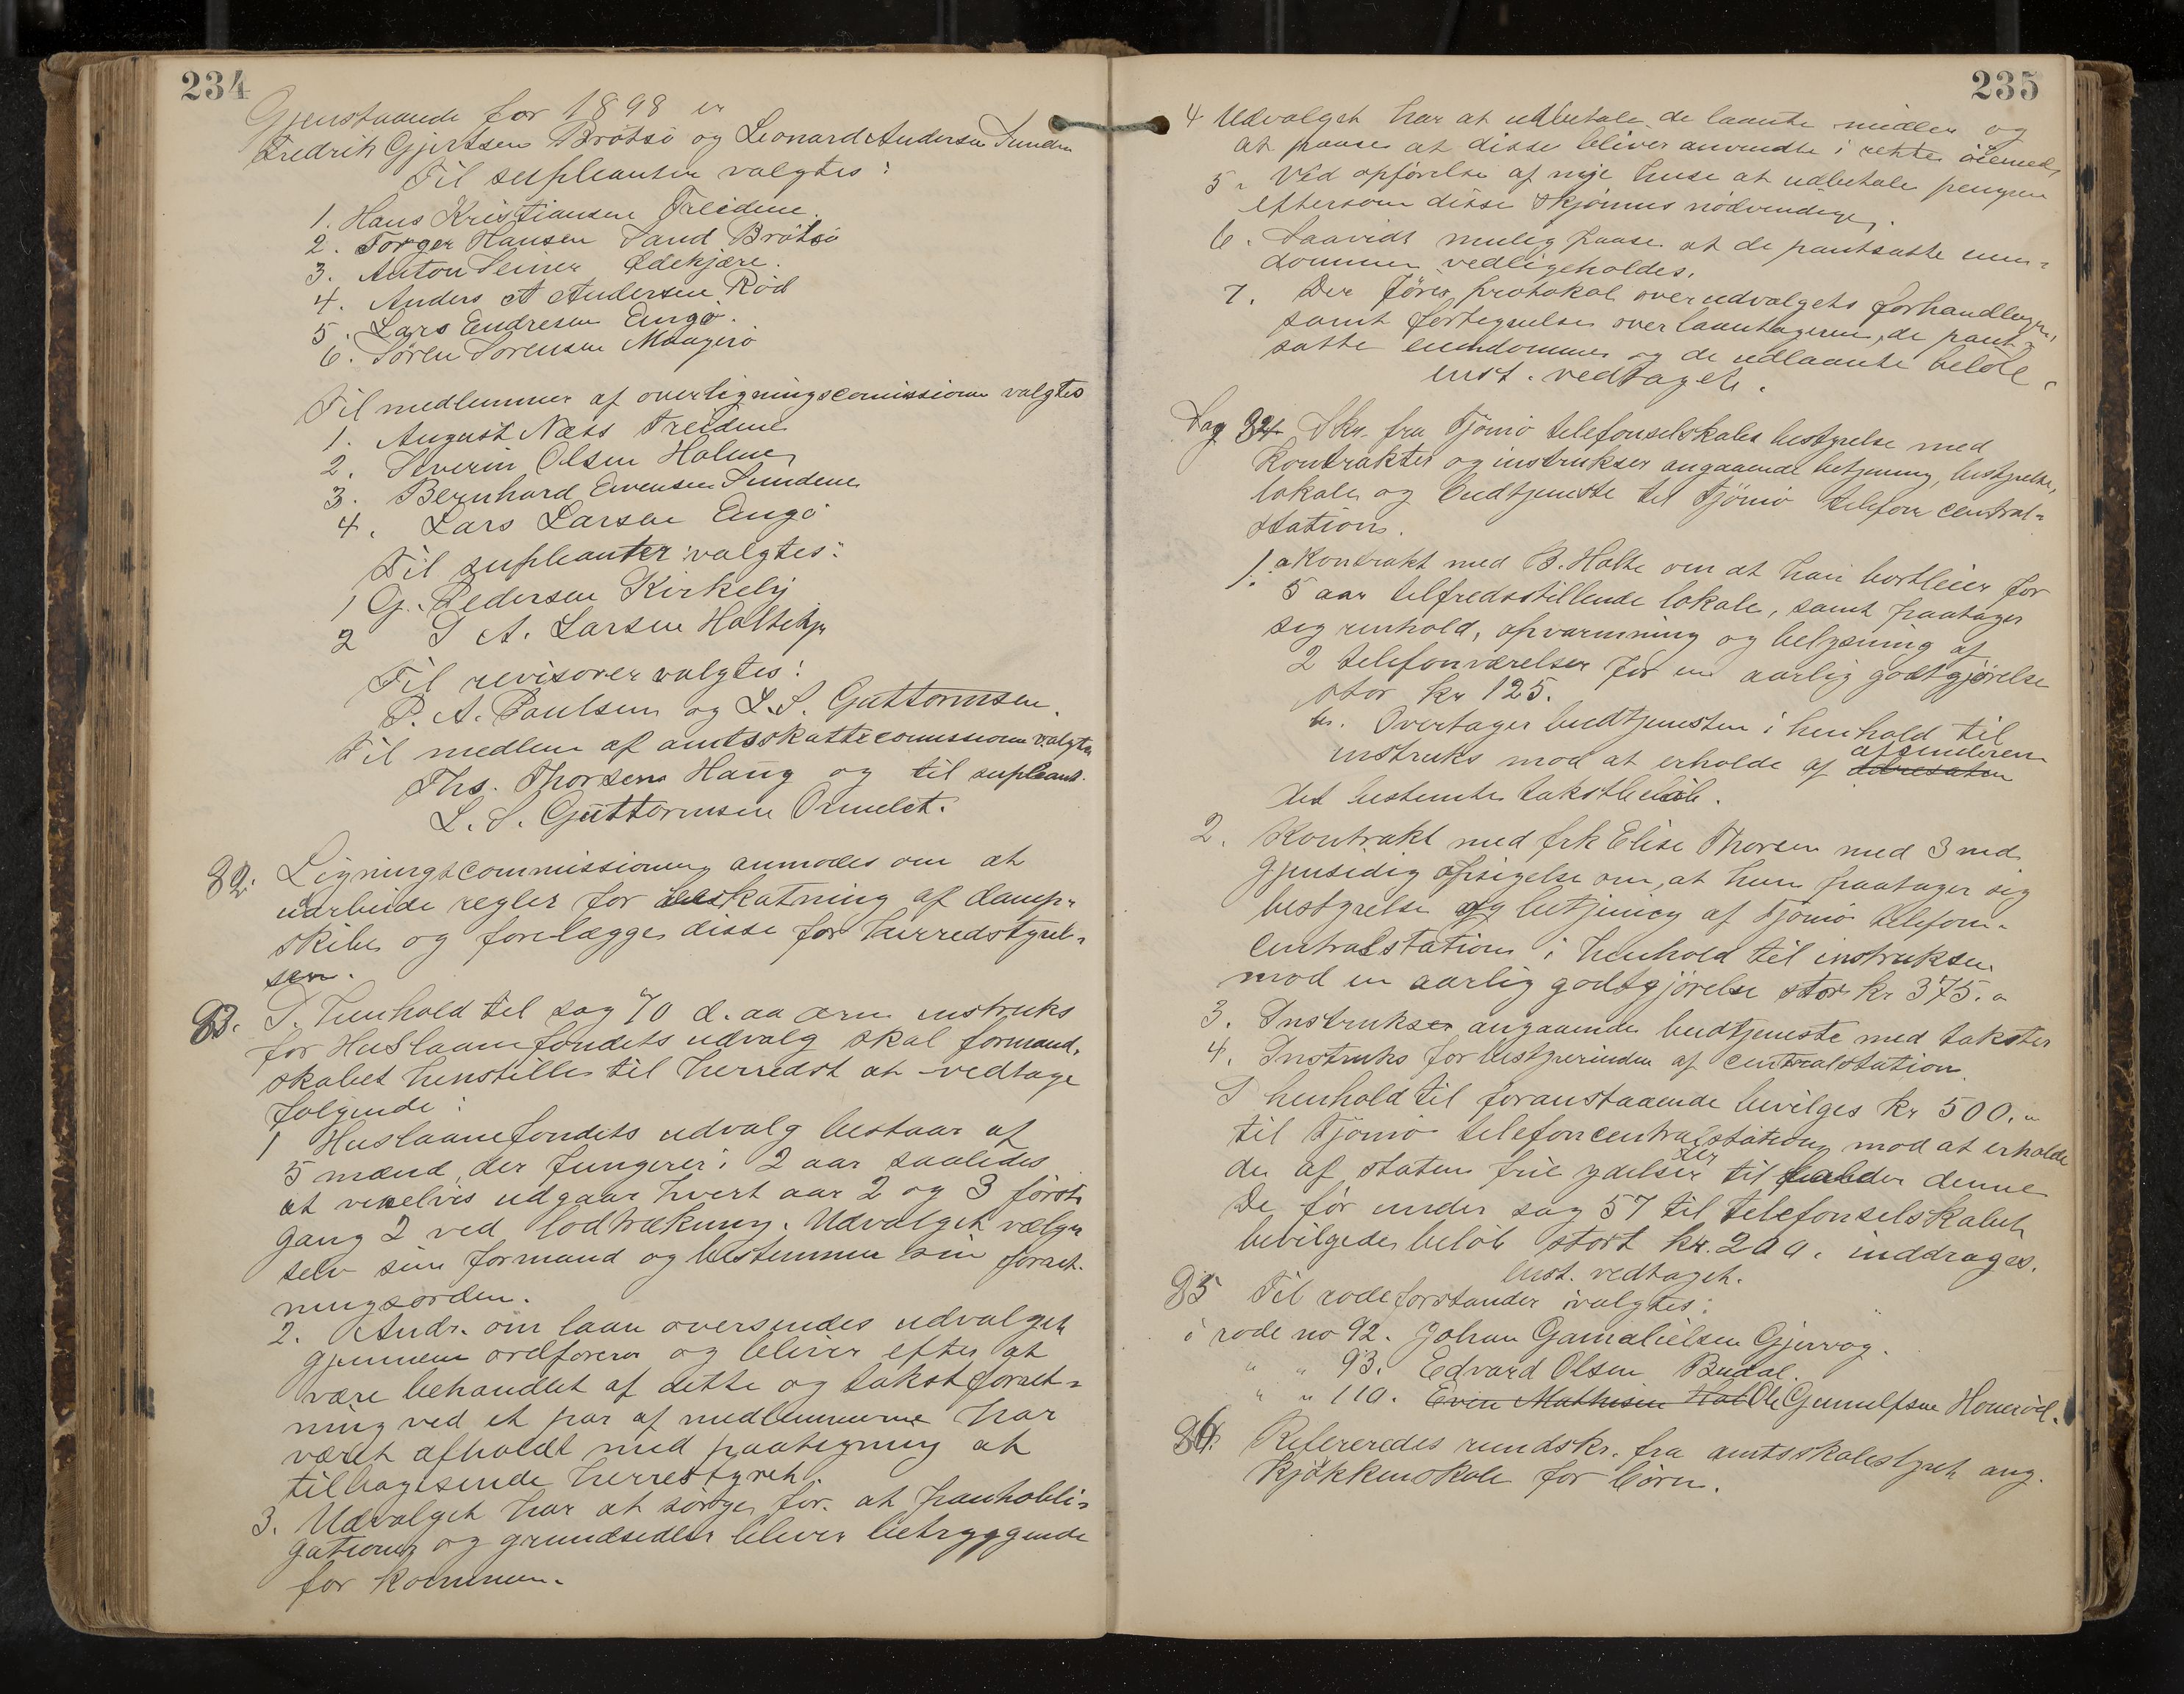 234
Gjenstaaende for 1898 er
Fredrik Gjertsen Brötsö og Leonard Andersen Sunden
Til supleanter valgtes:
1. Hans Kristiansen Treidene.
2. Torger Hansen Sand Brötsö
3. Anton Seiner Ødekjære.
4. Anders A Andersen Röd
5. Lars Endresen Engö.
6. Sören Sorensen Maagerö
Til medlemmer af overligningscomissionen valgtes
1. August Næss Treidene
2. Severin Olsen Holmen
3. Bernhard Evensen Sundene
4. Lars Larsen Engö
Til supleanter valgtes:
1 G. Pedersen Kirkeby
2 S A. Larsen Holtekjær
Til revisorer valgtes:
P. A. Paulsen og L. S. Guttormsen.
Til medlem af amtsskattecomissionen valgtes
Ths. Thorsen Haug og til supleant.
L. S. Guttormsen Ormelet.
82. Ligningscommissionen anmodes om at
udarbeide regler for beskatning af damp-
skibe og forelægge disse for herredstyrel-
sen.
83. I henhold til sag 70 d. aa ang. instruks
for Huslaanefondets udvalg skal formand-
skabet henstille til herredst at vedtage
folgende:
1 Huslaanefondets udvalg bestaar af
5 mænd, der fungerer i 2 aar saaledes
at vexelvis udgaar hvert aar 2 og 3 förste
gang 2 ved lodtrækning. Udvalget vælger
selv sin formand og bestemmer sin forret-
ningsorden.
2. Andr. om laan oversendes udvalget
gjennem ordforeren og bliver efter at
være behandlet af dette og takstforret-
ning ved et par af medlemmerne har
været afholdt med paategning at
tilbagesende herrestyret.
3. Udvalget har at sörge for at panteobli-
gationer og grundsedler bliver betryggende
for kommunen.
235
4 Udvalget har at udbetale de laante midler og
at paase at disse bliver anvendte i rette öiemed,
5. Ved opförelse af nye huse at udbetale pengene
eftersom disse skjönnes nödvendige.
6. Saavidt mulig paase at de pantsatte eien-
domme vedligeholdes.
7. Der förer protokol over udvalgets forhandlinger,
samt fortegnelse over laantagerne, de pant-
satte eiendomme og de udlaante belöb.
enst. vedtaget.
Sag 84 Skr. fra Tjömö telefonselskabs bestyrelse med
kontrakter og instrukser angaaende betjening, bestyrelse,
lokale og budtjeneste til Tjömö telefon central-
station.
1. a Kontrakt med B. Holte om at han bortleier for
5 aar tilfredsstillende lokale, samt paatager
sig renhold, opvarmning og belysning af
2 telefonværelser for en aarlig godtgjörelse
stor kr 125.
b. Overtager budtjenesten i henhold til
instruks mod at erholde af adresaten afsenderen
det bestemte takstbelöb.
2. Kontrakt med frk Elise Thorsen med 3 mdr
gjensidig opsigelse om, at hun paatager sig
bestyrelse og betjening af Tjömö telefon-
centralstation i henhold til instruksen
mod en aarlig godtgjörelse stor kr 375.
3. Instrukser angaaende budtjeneste med takster
4. Instruks for bestyrerinden af centralstation.
I henhold til foranstaaende bevilges kr 500.
til Tjömö telefoncentralstation mod at erholde
de af staten frie ydelser til denne
De för under sag 57 til telefonselskabet
bevilgede belöb stort kr. 200. inddrages.
enst. vedtaget.
85 Til rodeforstander valgtes:
i rode no 92. Johan Gamalielsen Gjervog.
" " 93. Edvard Olsen Budal.
" " 110. Even Mathisen Hol Ole Gunnulfsen Honeröd.
86. Refereredes rundskr. fra amtsskolestyret ang.
kjökkenskole for börn.